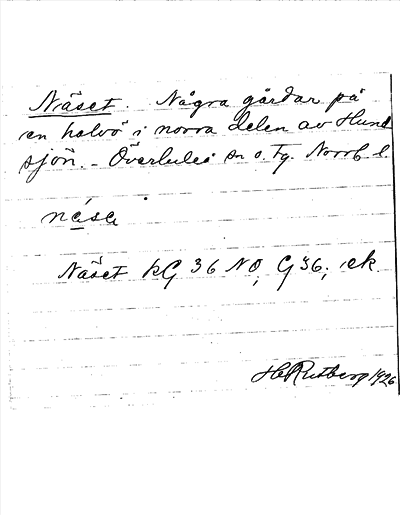 Näset. Några gårdar på
en halvö i norra delen av Hund
sjön. - Överluleå sn o. Tg. Norrb. l.
Näset kG 36 NO, G 36; ek.
H Rutberg 1926